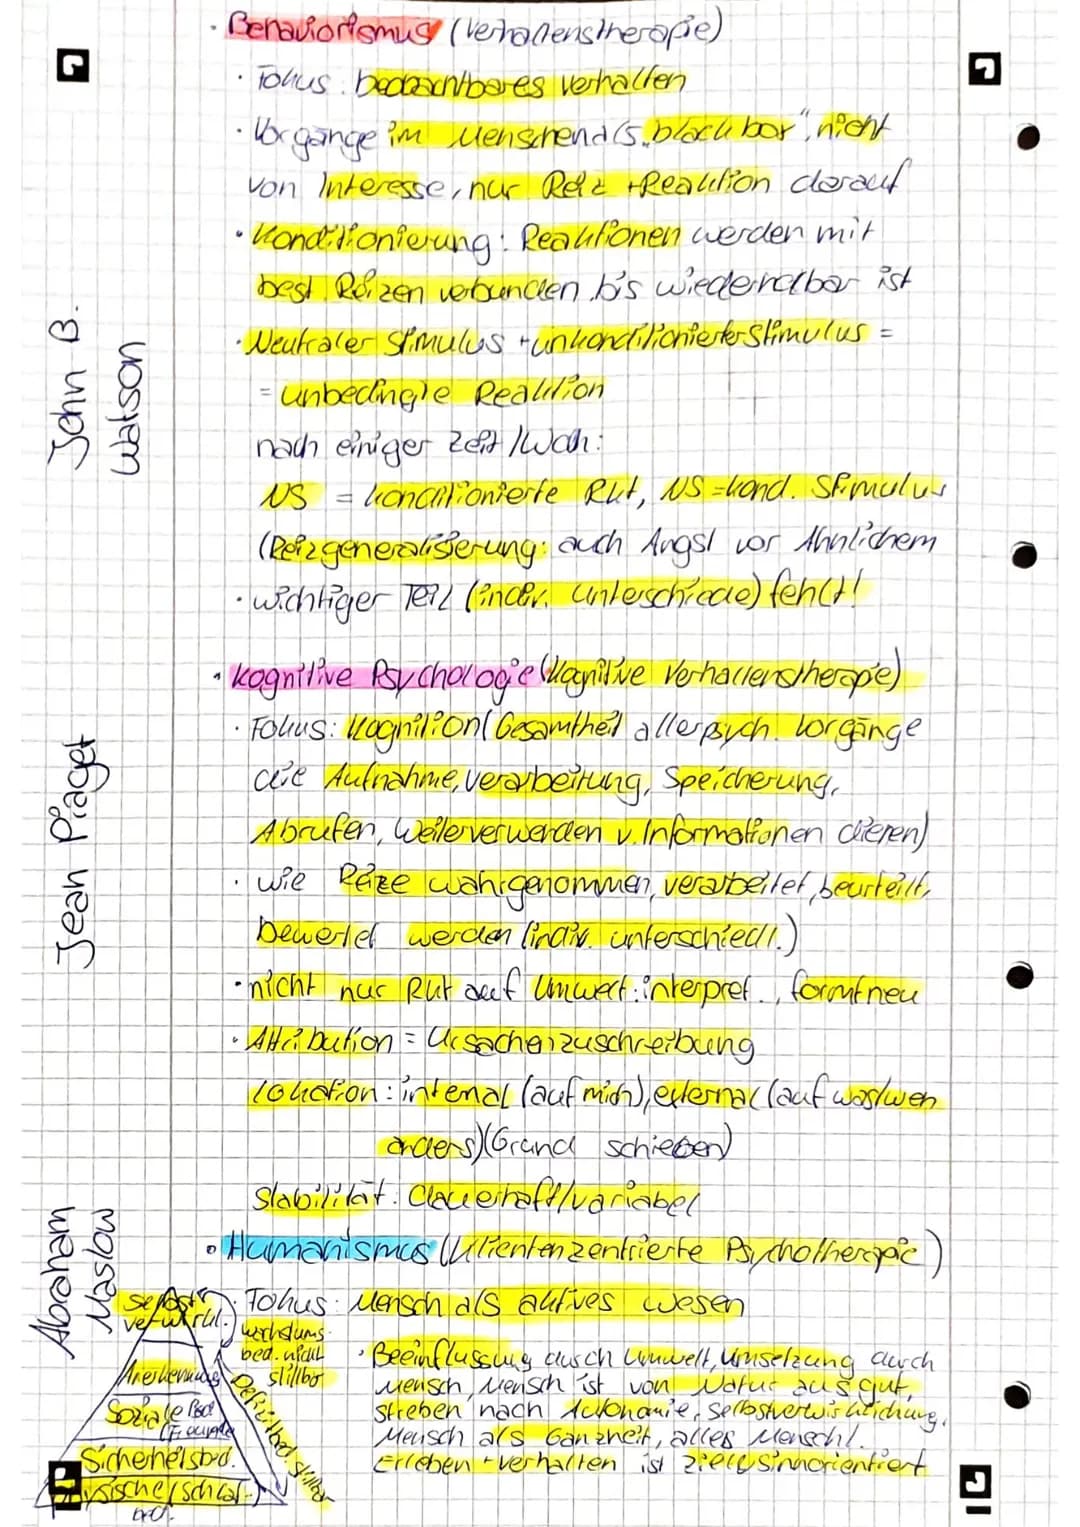 · Behaviorismus (Verhaltenstherapie)
· Fokus: beobachtbares Verhalten
· Vorgänge im Menschen als „black box", nicht
von Interesse, nur Reiz + Reaktion darauf
· Konditionierung: Reaktionen werden mit
best. Reizen verbunden bis wiederholbar ist
· Neutraler Stimulus + unkonditionierter Stimulus =
= unbedingte Reaktion
nach einiger Zeit / Wdh:
NS = konditionierte Rkt, NS = kond. Stimulus
(Reizgeneralisierung: auch Angst vor Ähnlichem
· wichtiger Teil (indiv. Unterschiede) fehlt!
John B.
Watson
· kognitive Psychologie (kognitive Verhaltenstherapie)
· Fokus: Kognition (Gesamtheit aller psych. Vorgänge
die Aufnahme, Verarbeitung, Speicherung,
Abrufen, Weiterverwenden v. Informationen dienen)
· wie Reize wahrgenommen, verarbeitet, beurteilt,
bewertet werden (indiv. unterschiedl.)
· nicht nur Rkt auf Umwelt: interpret., formt neu
· Attribution = Ursachenzuschreibung
Lokation: internal (auf mich), external (auf was/wen
anders) (Grund schieben)
Stabilität: dauerhaft/variabel
Jean Piaget
· Humanismus (Klientenzentrierte Psychotherapie)
· Fokus: Mensch als aktives Wesen
· Beeinflussung durch Umwelt, Umsetzung durch
Mensch, Mensch ist von Natur aus gut,
streben nach Autonomie, Selbstverwirklichung,
Mensch als Ganzheit, alles Menschl.
Erleben + Verhalten ist ziel- u. sinnorientiert
Abraham
Maslow
Selbst-
verwirkl.
Wachstums-
bed. nicht
stillbar
Anerkennung
Soziale Bed.
(Freunde
Sicherheitsbed.
Physische (Schlaf..)
bed.
Defizitbed. stillbar